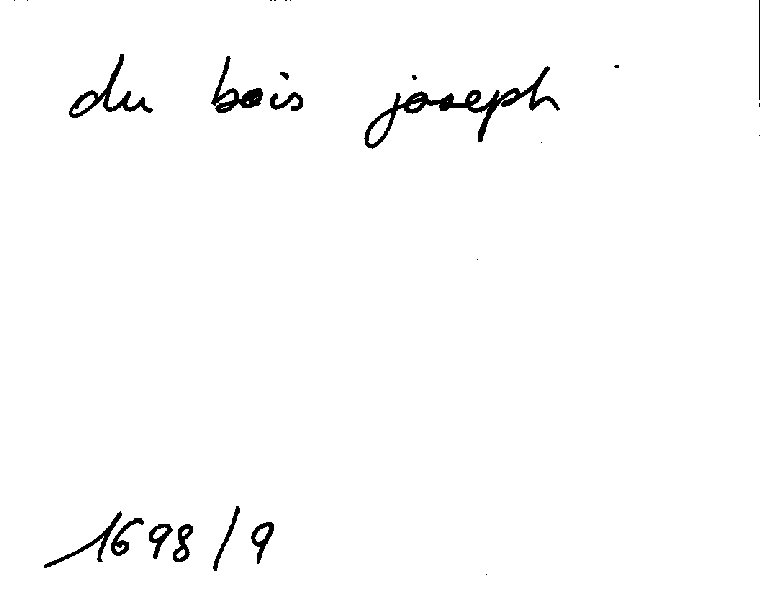 du bois joseph
1698/9